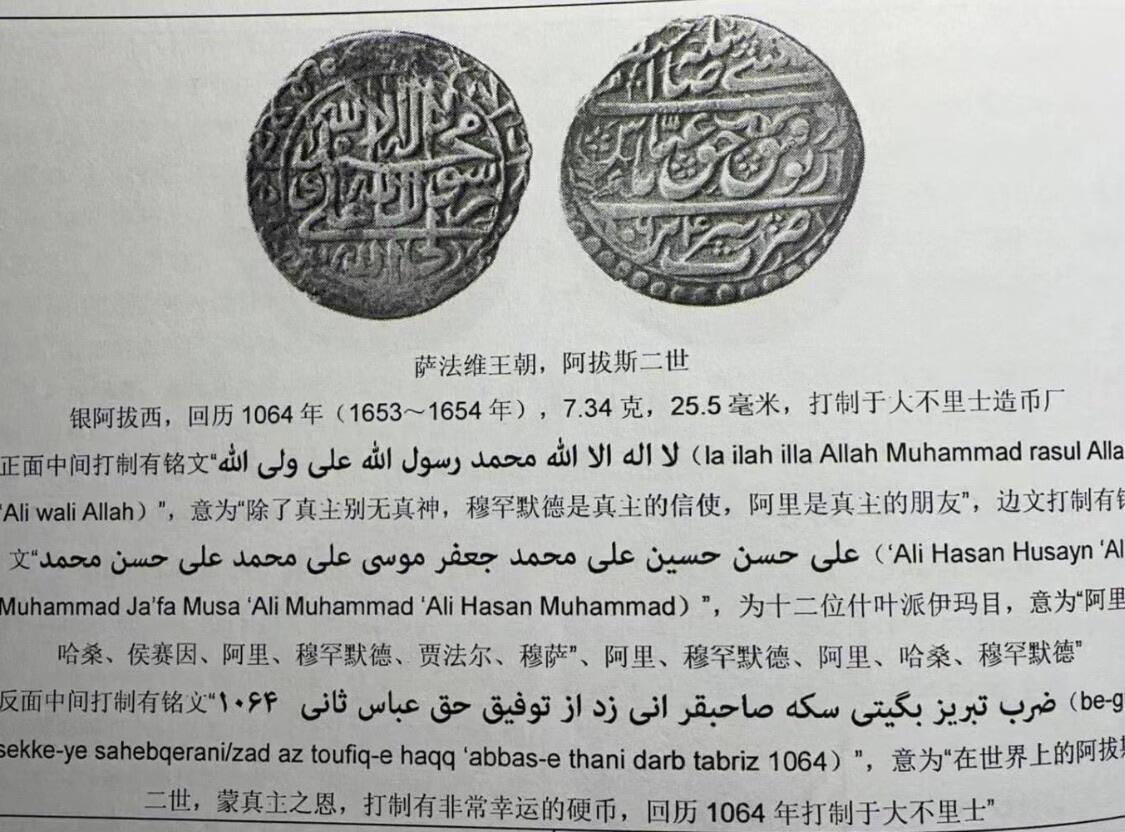 萨法维王朝，阿拔斯二世
银阿拔西，回历 1064 年（1653～1654 年），7.34 克，25.5 毫米，打制于大不里士造币厂
正面中间打制有铭文“لا اله الا الله محمد رسول الله علی ولی الله（la ilah illa Allah Muhammad rasul Alla
‘Ali wali Allah）”，意为“除了真主别无真神，穆罕默德是真主的信使，阿里是真主的朋友”，边文打制有铭
文“علی حسن حسین علی محمد جعفر موسی علی محمد علی حسن محمد（‘Ali Hasan Husayn ‘Al
Muhammad Ja’fa Musa ‘Ali Muhammad ‘Ali Hasan Muhammad）”，为十二位什叶派伊玛目，意为“阿里
哈桑、侯赛因、阿里、穆罕默德、贾法尔、穆萨”、阿里、穆罕默德、阿里、哈桑、穆罕默德”
反面中间打制有铭文“ضرب تبریز بگیتی سکه صاحبقر انی زد از توفیق حق عباس ثانی ۱۰۶۴（be-g
sekke-ye sahebqerani/zad az toufiq-e haqq ‘abbas-e thani darb tabriz 1064）”，意为“在世界上的阿拔斯
二世，蒙真主之恩，打制有非常幸运的硬币，回历 1064 年打制于大不里士”